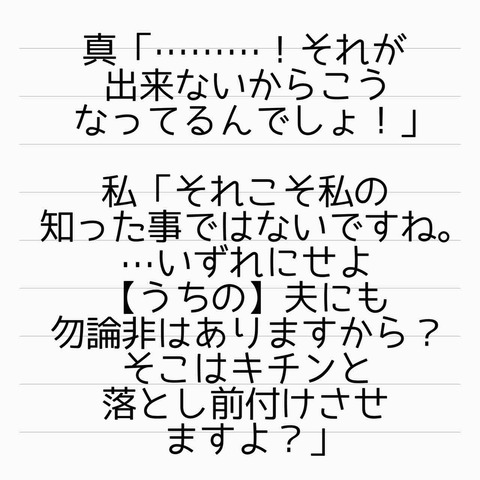 真「………！それが
出来ないからこう
なってるんでしょ！」
私「それこそ私の
知った事ではないですね。
…いずれにせよ
【うちの】夫にも
勿論非はありますから？
そこはキチンと
落とし前付けさせ
ますよ？」